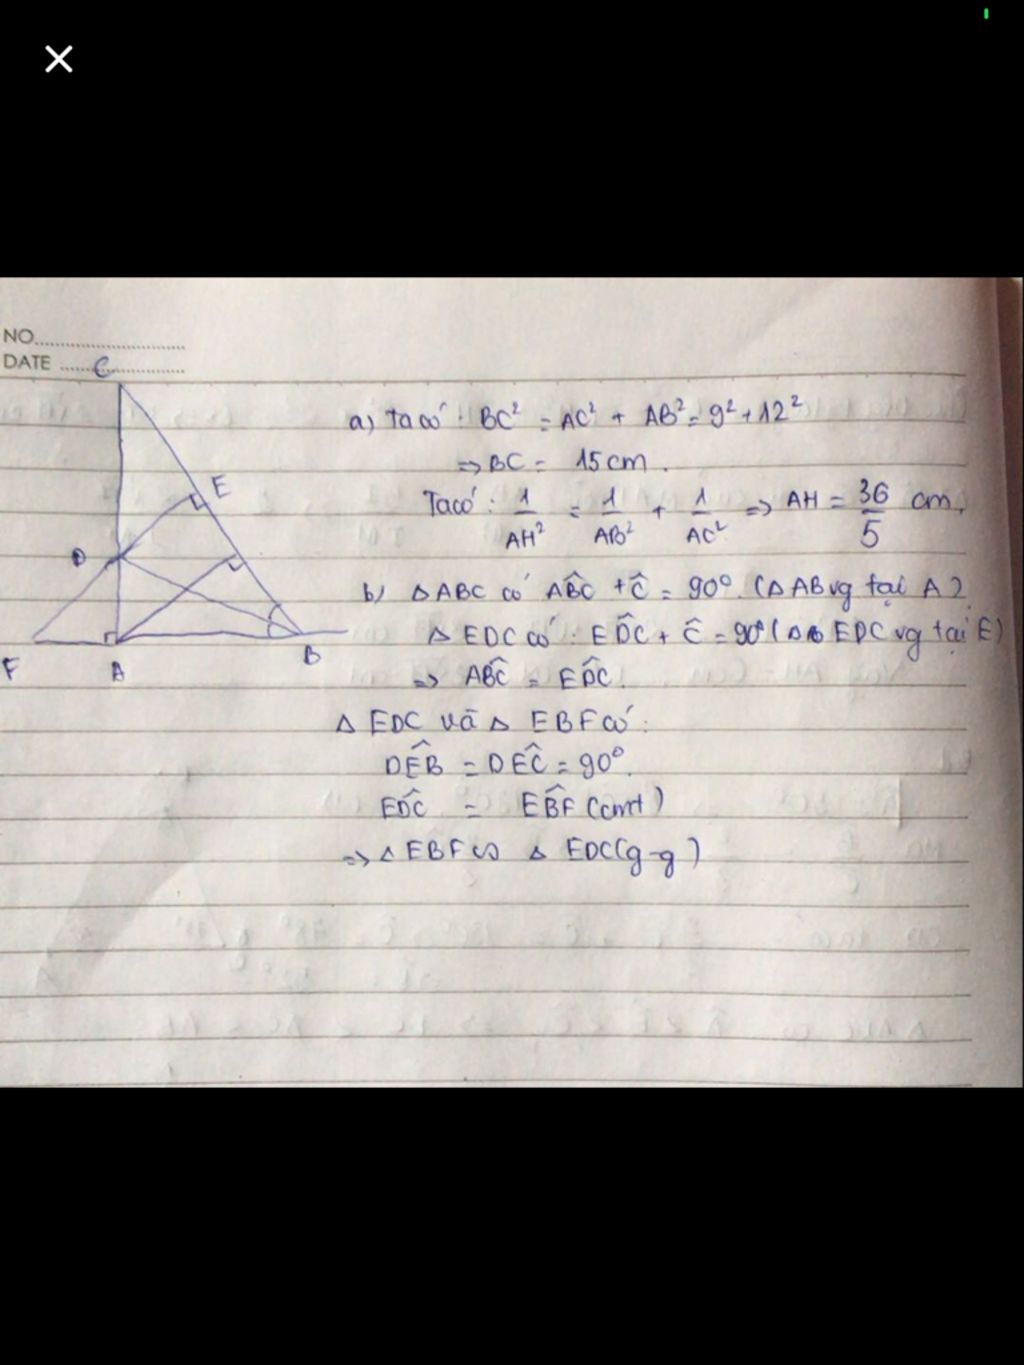 NO.
DATE
C
a) Ta có : BC² = AC² + AB² = 9² + 12²
=> BC = 15cm.
E
Ta có : 1/AH² = 1/AB² + 1/AC² => AH = 36/5 cm.
D
b) △ABC có AB̂C + Ĉ = 90° (△AB vg tại A)
△EDC có : ED̂C + Ĉ = 90° (△ EDC vg tại E)
F A B
=> AB̂C = ED̂C.
△ EDC và △ EBF có :
DÊB = DÊC = 90°.
ED̂C = EB̂F (cmt)
=> △EBF ∽ △ EDC (g-g)